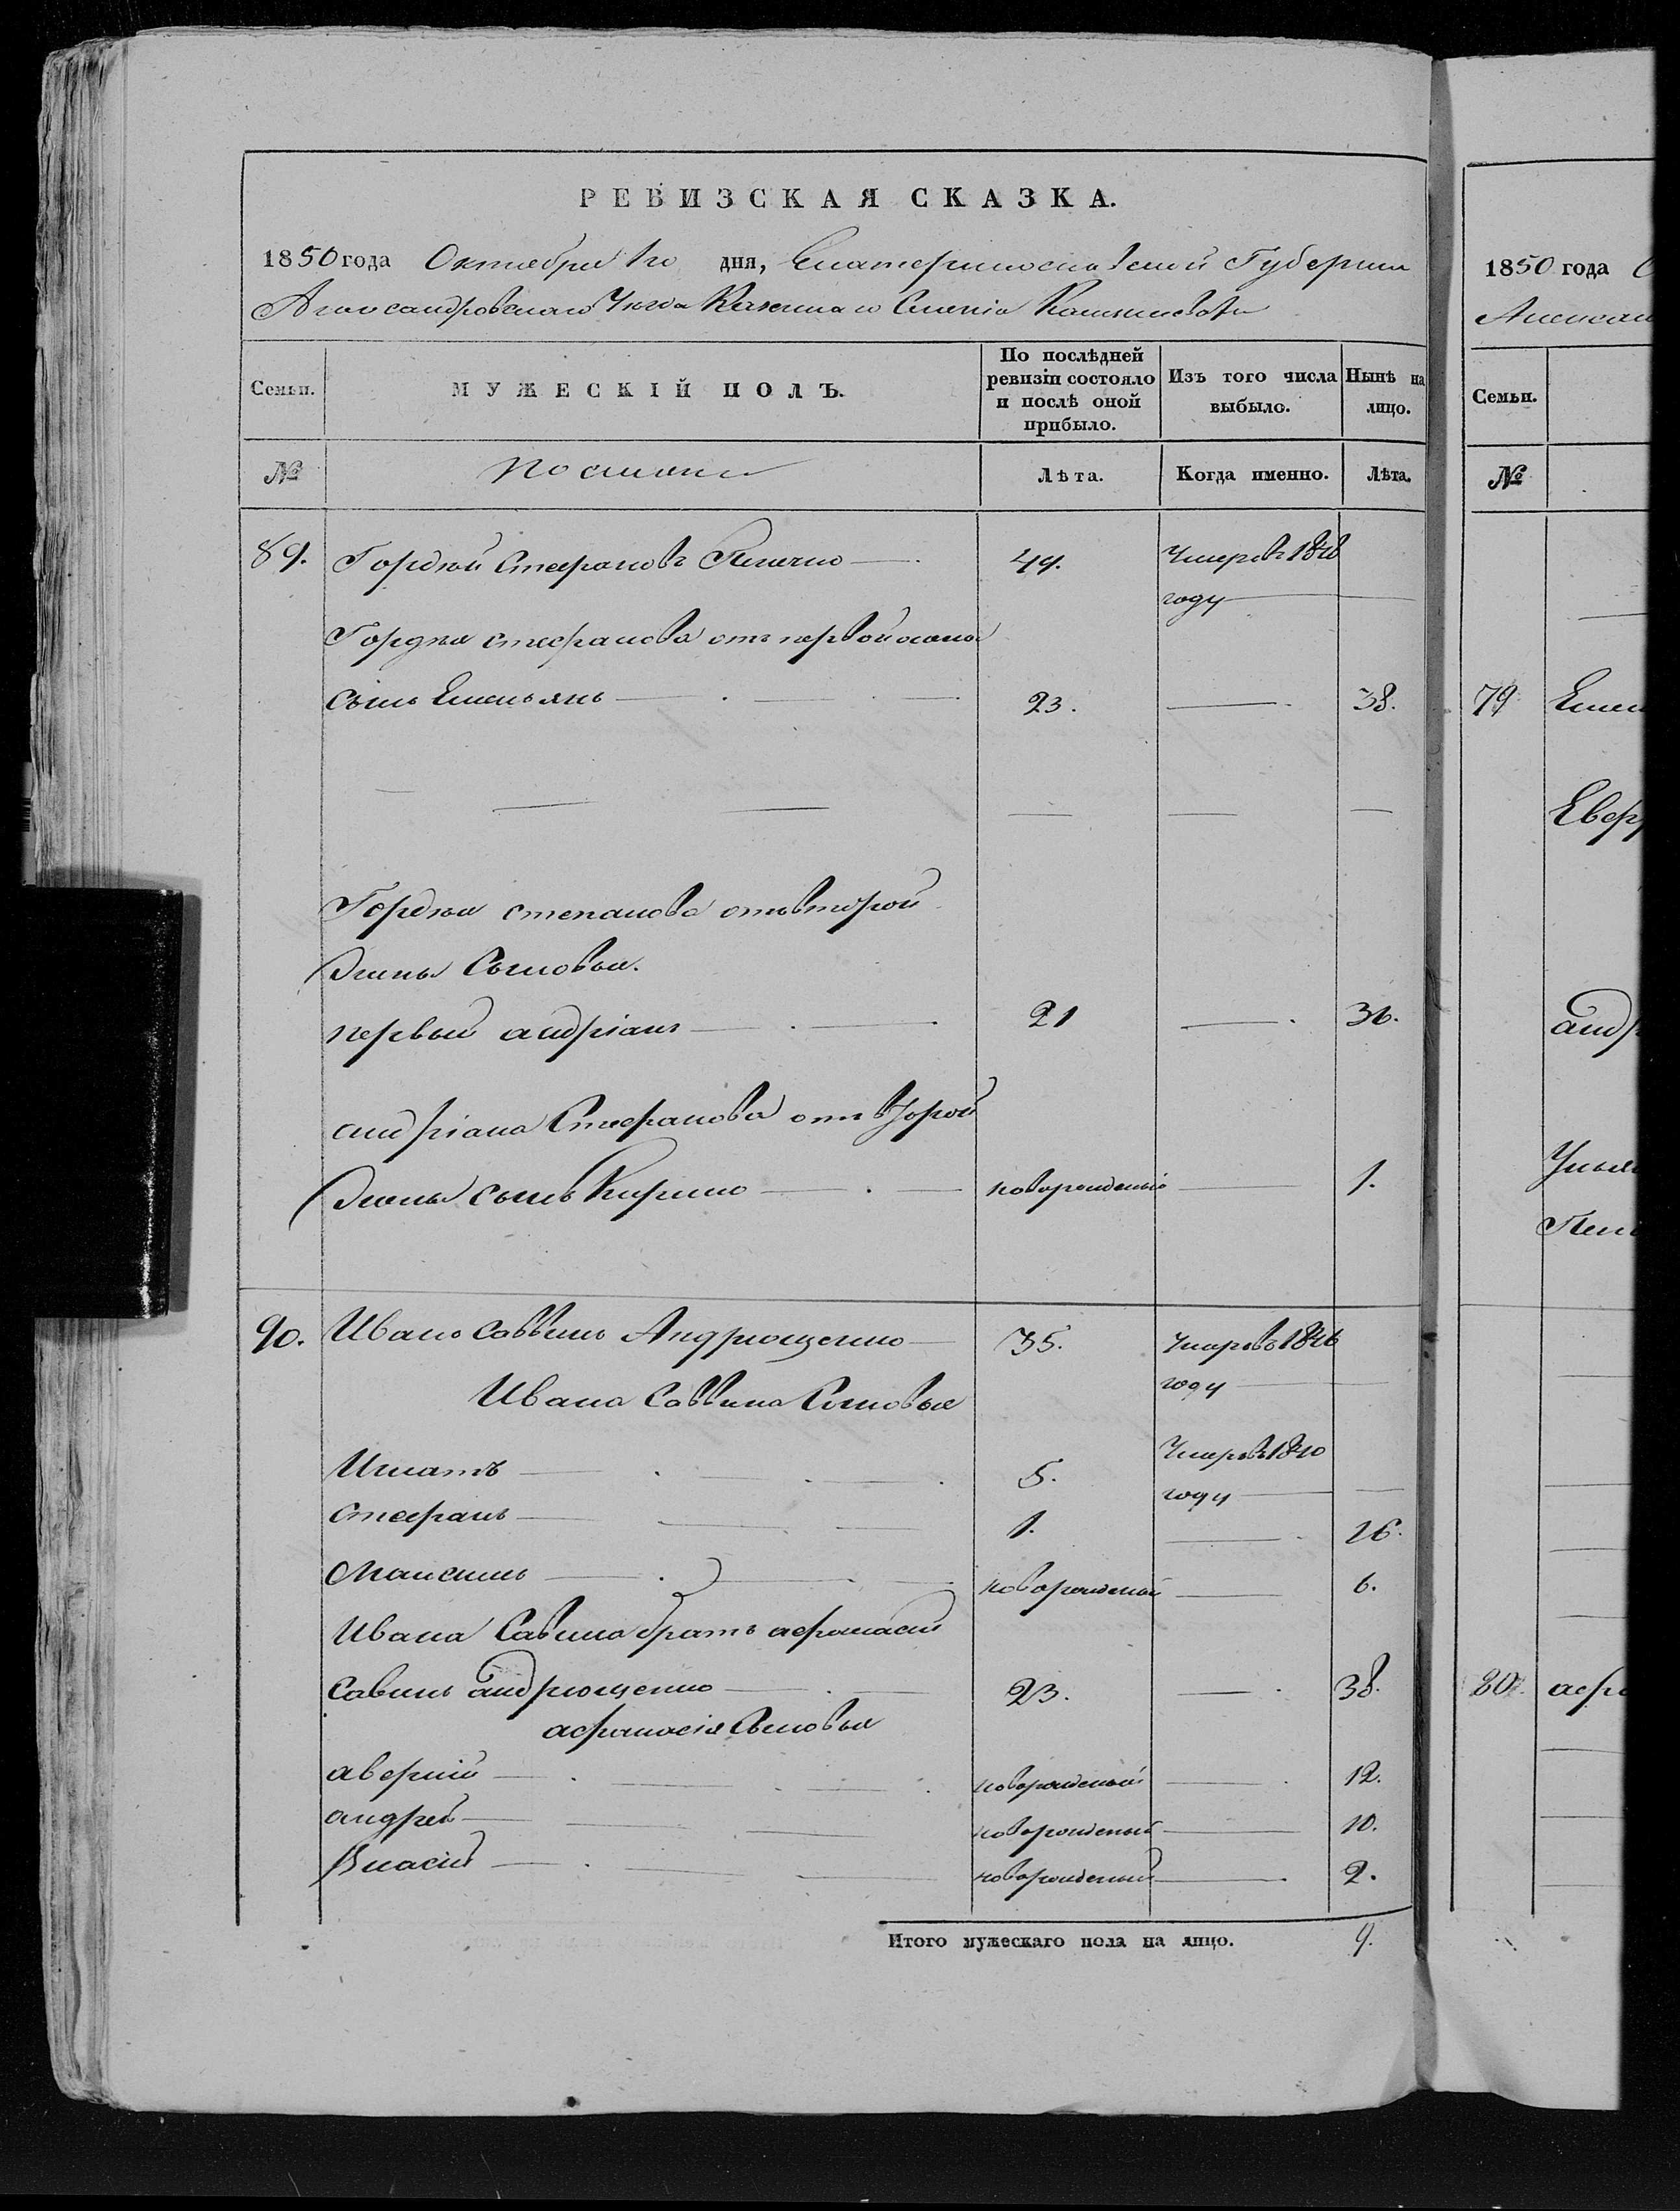 РЕВИЗСКАЯ СКАЗКА.
1850 года Октября 1го дня, Екатеринославской Губернии
Александровскаго Уезда Казеннаго Селенія
Семьи. МУЖЕСКІЙ ПОЛЪ. По послѣдней ревизіи состояло и послѣ оной прибыло. Изъ того числа выбыло. Нынѣ на лицо.
№ Лѣта. Когда именно. Лѣта.
89. Гордѣй Стефановъ 49. Умеръ въ 1848
году
Гордѣя Стефанова отъ первой жены
сынъ Емельянъ 23. 38.
Гордѣя степанова отъ второй
жены Сыновья.
первый андріанъ 21 36.
андріана Стефанова отъ второй
жены сынъ Кирило новорожденый 1.
90. Иванъ Саввинъ Андрющенко 35. Умеръ въ 1846
году
Ивана Саввина Сыновья
Игнатъ 5. Умеръ въ 1840
году
стефанъ 1. 16.
Максимъ новорожденый 6.
Ивана Савина братъ афанасій
Савинъ андрющенко 23. 38.
афанасія Сыновья
аверкій новорожденый 12.
андрей новорожденый 10.
Власій новорожденый 2.
Итого мужескаго пола на лицо. 9.
1850 года
Семьи.
№
79
80.